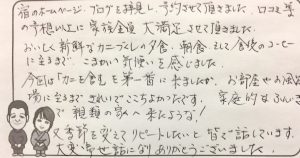 宿のホームページ・ブログを拝見し、予約させて頂きました。口コミ等
の予想以上に家族全員大満足させて頂きました。
おいしく新鮮なカニづくしの夕食、朝食、そして食後のコーヒー
に至るまで、こまかい気使いを感じました。
今回は「カニを食す」を第一番に来ましたが、お部屋やお風呂
場に至るまできれいでここちよかったです。家庭的なふんいき
で親類の家へ来たような!
又季節を変えてリピートしたいと皆で話しています。
大変お世話になりありがとうございました。